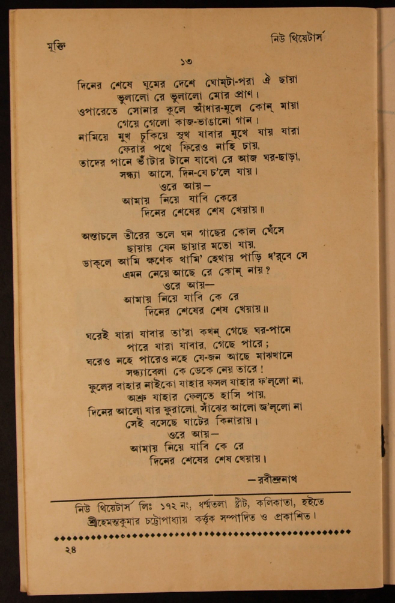 মুক্তি
নিউ থিয়েটার্স
১৩
দিনের শেষে ঘুমের দেশে ঘোমটা-পরা ঐ ছায়া
ভুলালো রে ভুলালো মোর প্রাণ।
ওপারেতে সোনার কূলে আঁধার-মূলে কোন্ মায়া
গেয়ে গেলো কাজ-ভাঙানো গান।
নামিয়ে মুখ চুকিয়ে সুখ যাবার মুখে যায় যারা
ফেরার পথে ফিরেও নাহি চায়,
তাদের পানে ভাঁটার টানে যাবো রে আজ ঘর-ছাড়া,
সন্ধ্যা আসে, দিন-যে চ'লে যায়।
ওরে আয়—
আমায় নিয়ে যাবি কেরে
দিনের শেষের শেষ খেয়ায়॥
অস্তাচলে তীরের তলে ঘন গাছের কোল ঘেঁসে
ছায়ায় যেন ছায়ার মতো যায়,
ডাক্‌লে আমি ক্ষণেক থামি' হেথায় পাড়ি ধ'র্‌বে সে
এমন নেয়ে আছে রে কোন্ নায়?
ওরে আয়—
আমায় নিয়ে যাবি কে রে
দিনের শেষের শেষ খেয়ায়॥
ঘরেই যারা যাবার তা'রা কখন্ গেছে ঘর-পানে
পারে যারা যাবার, গেছে পারে;
ঘরেও নহে পারেও নহে যে-জন আছে মাঝখানে
সন্ধ্যাবেলা কে ডেকে নেয় তারে!
ফুলের বাহার নাইকো যাহার ফসল যাহার ফ'ল্‌লো না,
অশ্রু যাহার ফেল্‌তে হাসি পায়,
দিনের আলো যার ফুরালো, সাঁঝের আলো জ্ব'ল্‌লো না
সেই বসেছে ঘাটের কিনারায়।
ওরে আয়—
আমায় নিয়ে যাবি কে রে
দিনের শেষের শেষ খেয়ায়।
—রবীন্দ্রনাথ
নিউ থিয়েটার্স লিঃ ১৭২ নং, ধর্ম্মতলা ষ্ট্রীট, কলিকাতা, হইতে
শ্রীহেমন্তকুমার চট্টোপাধ্যায় কর্ত্তৃক সম্পাদিত ও প্রকাশিত।
২৪